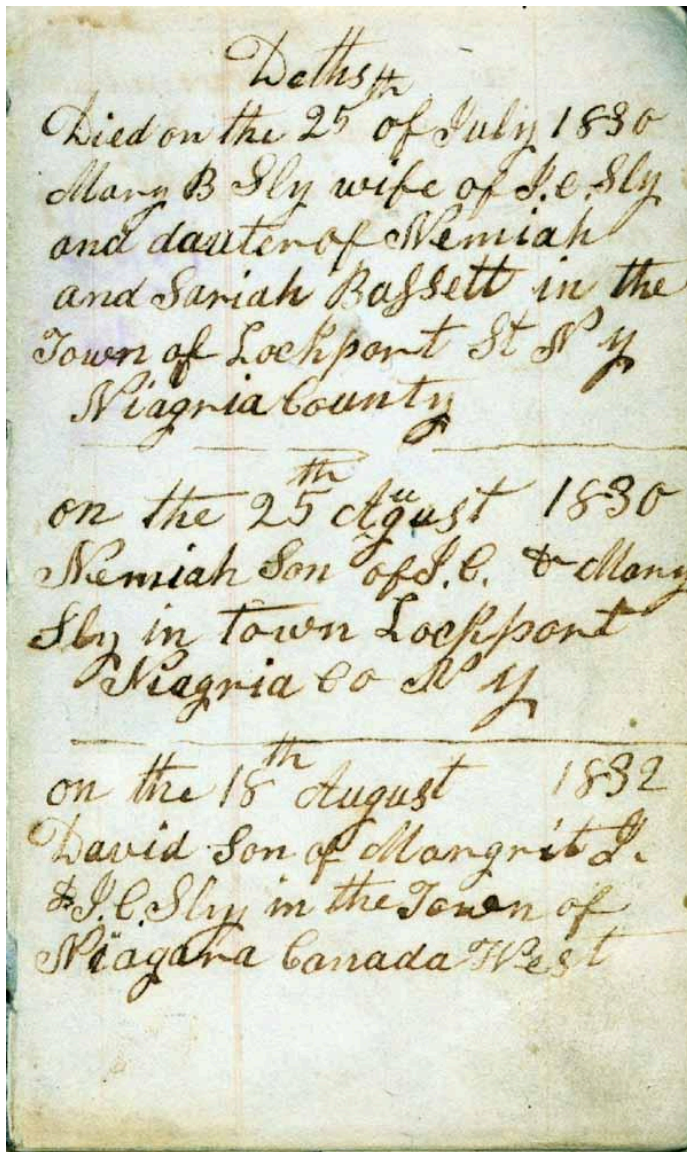 Deths
Died on the 25th of July 1830
Mary B Sly wife of J. C. Sly
and dauter of Nemiah
and Sariah Bassett in the
Town of Lockport St N Y
Niagria County
on the 25th August 1830
Nemiah Son of J. C. & Mary
Sly in town Lockport
Niagria Co N Y
on the 18th August 1832
David Son of Margrit J.
& J. C Sly in the Town of
Niagara Canada West